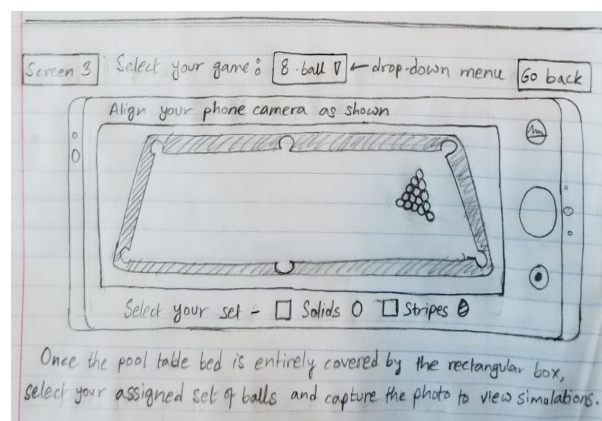 Screen 3
Select your game: 8-ball ∇ ← drop-down menu
Go back
Align your phone camera as shown
Select your set - □ Solids O □ Stripes
Once the pool table bed is entirely covered by the rectangular box,
select your assigned set of balls and capture the photo to view simulations.